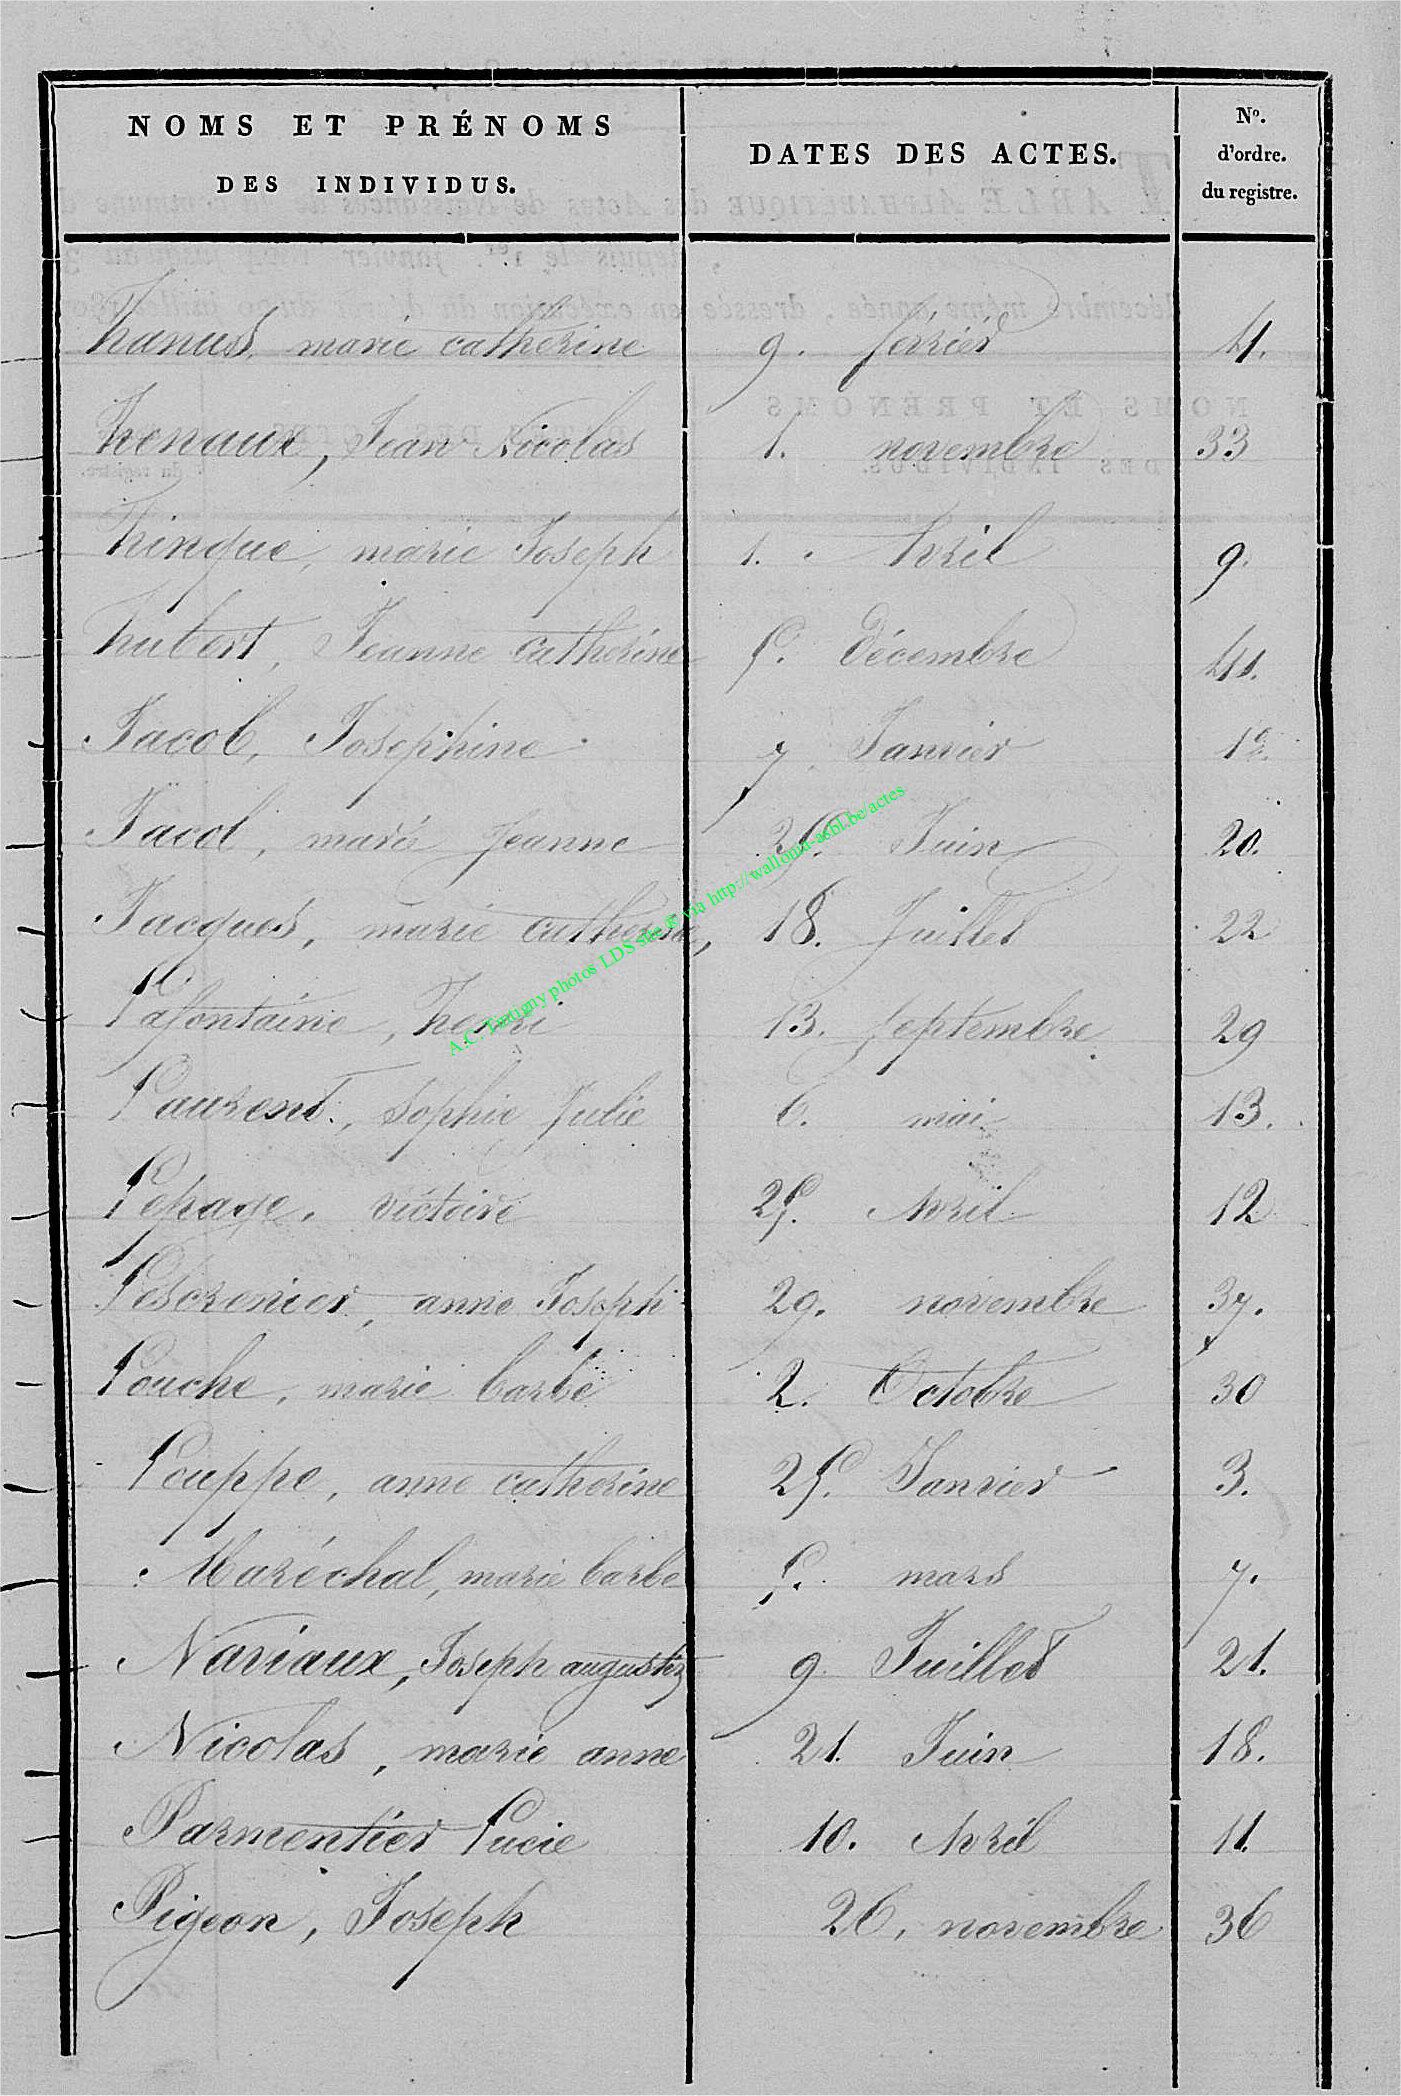 NOMS ET PRÉNOMS
DES INDIVIDUS.
DATES DES ACTES.
No.
d'ordre.
du registre.
hanus, marie catherine 9. février 4.
henaux, Jean Nicolas 1. novembre 33
hinque, marie Joseph 1. Avril 9.
hubert, Jeanne catherine 5. décembre 41.
Jacob, Josephine 7. Janvier 1er
Jacob, marie Jeanne 25. Juin 20.
Jacques, marie catherine, 18. Juillet 22
Lafontaine, henri 13. septembre 29
Laurent, Sophie Julie 6. mai 13.
Lepage, victoire 25. Avril 12
Lescrenier, anne Joseph 29. novembre 37.
Louche, marie barbe 2. Octobre 30
Louppe, anne catherine 25. Janvier 3.
Maréchal, marie barbe 5. mars 7.
Naviaux, Joseph augustin 9 Juillet 21.
Nicolas, marie anne 21. Juin 18.
Parmentier Lucie 10. Avril 11.
Pigeon, Joseph 26, novembre 36
A.C. Tintigny photos LDS site & via http://wallonia-asbl.be/actes